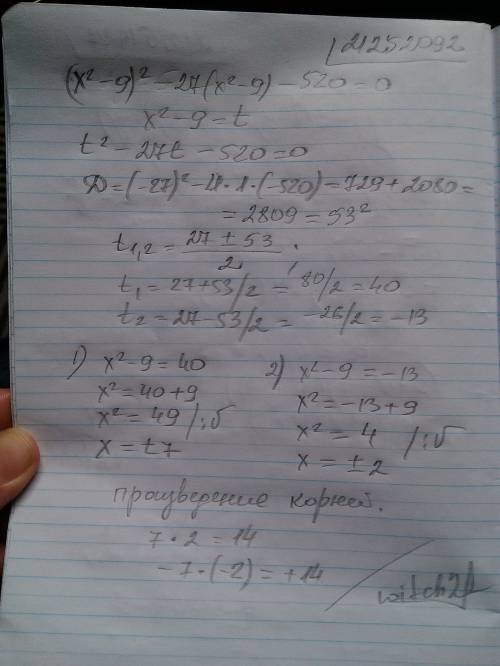 21252092
(x²-9)² - 27(x²-9) - 520 = 0
x² - 9 = t
t² - 27t - 520 = 0
D = (-27)² - 4·1·(-520) = 729 + 2080 =
= 2809 = 53²
t₁,₂ = (27 ± 53)/2 ;
t₁ = 27+53/2 = 80/2 = 40
t₂ = 27-53/2 = -26/2 = -13
1) x² - 9 = 40
x² = 40 + 9
x² = 49 /:√
x = ±7
2) x² - 9 = -13
x² = -13 + 9
x² = 4 /:√
x = ±2
произведение корней.
7 · 2 = 14
-7 · (-2) = +14
witch21